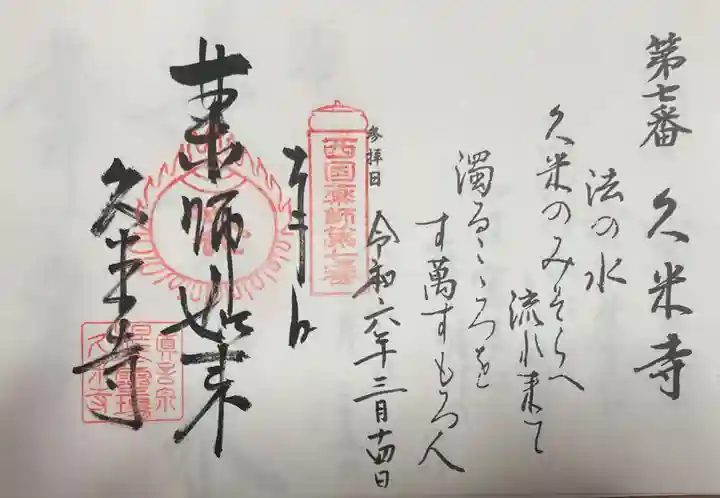 第七番 久米寺
法の水
久米のみそらへ
流れ来て
濁るこゝろを
すますもろ人
参拝日 令和六年三月十四日
西国薬師第七番
奉拝
薬師如来
久米寺
真言宗
霊場
久米寺